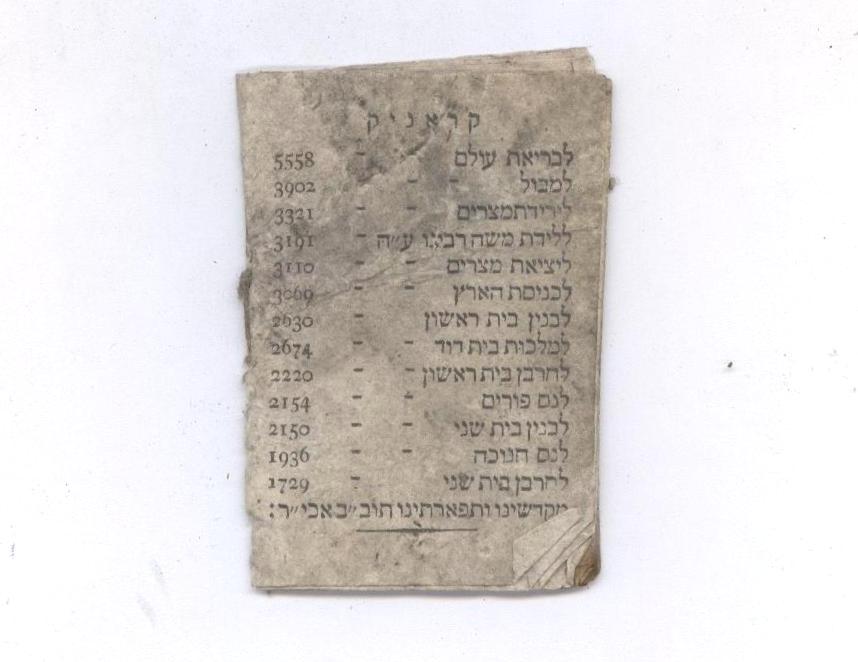 קראניק
לבריאת עולם - - 5558
למבול - - - 3902
לירידת מצרים - - 3321
ללידת משה רבינו ע״ה - 3191
ליציאת מצרים - - 3110
לכניסת הארץ - - 3069
לבנין בית ראשון - 2630
למלכות בית דוד - - 2674
לחרבן בית ראשון - - 2220
לנס פורים - - 2154
לבנין בית שני - - 2150
לנס חנוכה - - 1936
לחרבן בית שני - 1729
מקדשינו ותפארתינו תוב״ב אכי״ר: